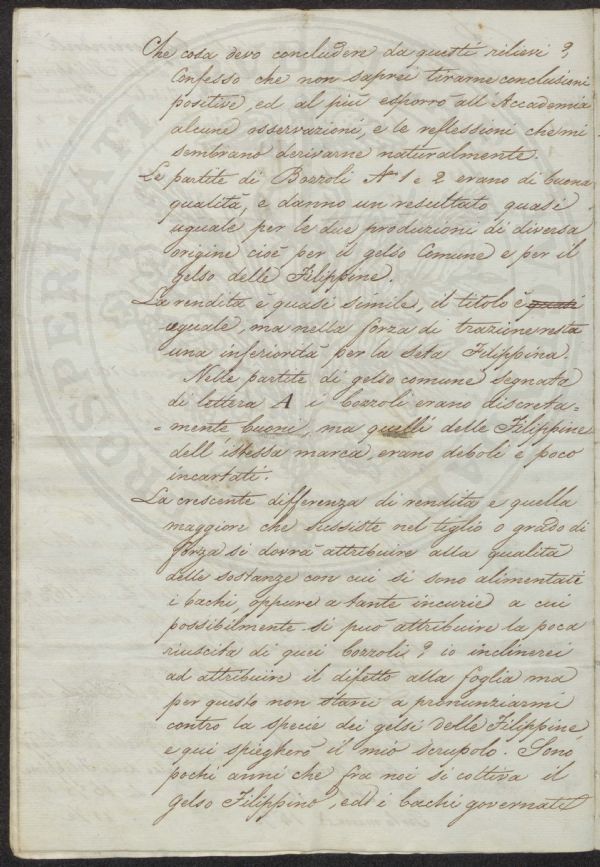 Che cosa devo concludere da questi rilievi?
Confesso che non saprei tirarne conclusioni
positive, ed al più esporrò all'Accademia
alcune osservazioni, e le reflessioni che mi
sembrano derivarne naturalmente.
Le partite di Bozzoli Nº 1 e 2 erano di buona
qualità, e danno un resultato quasi
uguale per le due produzioni di diversa
origine cioè per il gelso Comune e per il
gelso delle Filippine.
La rendita è quasi simile, il titolo è quasi
uguale, ma nella forza di trazione vi sta
una inferiorità per la seta Filippina.
Nelle partite di gelso comune segnata
di lettera A i bozzoli erano discreta-
-mente buoni, ma quelli delle Filippine
dell'istessa marca, erano deboli e poco
incartati.
La crescente differenza di rendita e quella
maggiore che sussiste nel tiglio o grado di
forza si dovrà attribuire alla qualità
delle sostanze con cui si sono alimentati
i bachi, oppure a tante incurie a cui
possibilmente si può attribuire la poca
riuscita di quei bozzoli? io inclinerei
ad attribuire il difetto alla foglia ma
per questo non starei a pronunziarmi
contro la specie dei gelsi delle Filippine
e qui spiegherò il mio scrupolo. Sono
pochi anni che fra noi si coltiva il
gelso Filippino, ed i bachi governati